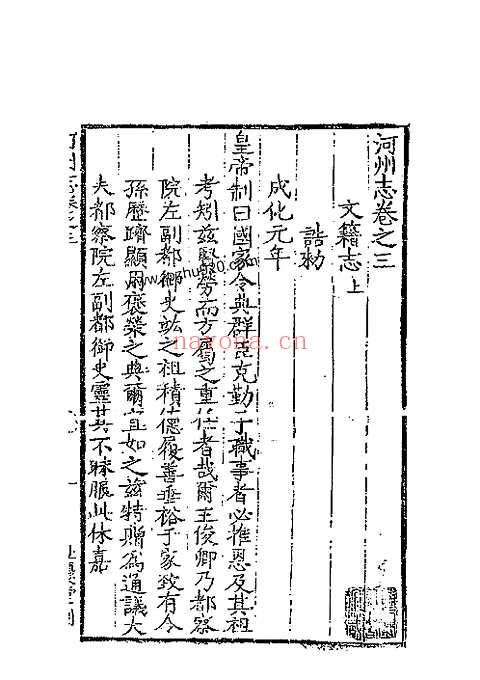 河州志卷之三
文籍志上
誥勑
成化元年
皇帝制曰國家令典群臣克勤于職事者必推恩及其祖
考矧茲賢勞而方面之重任者哉爾王俊卿乃都察
院左副都御史竑之祖積德履善垂裕于家致有令
孫歷躋顯用褒榮之典爾宜如之茲特贈為通議大
夫都察院左副都御史靈其不昧服此休嘉
nayona.cn